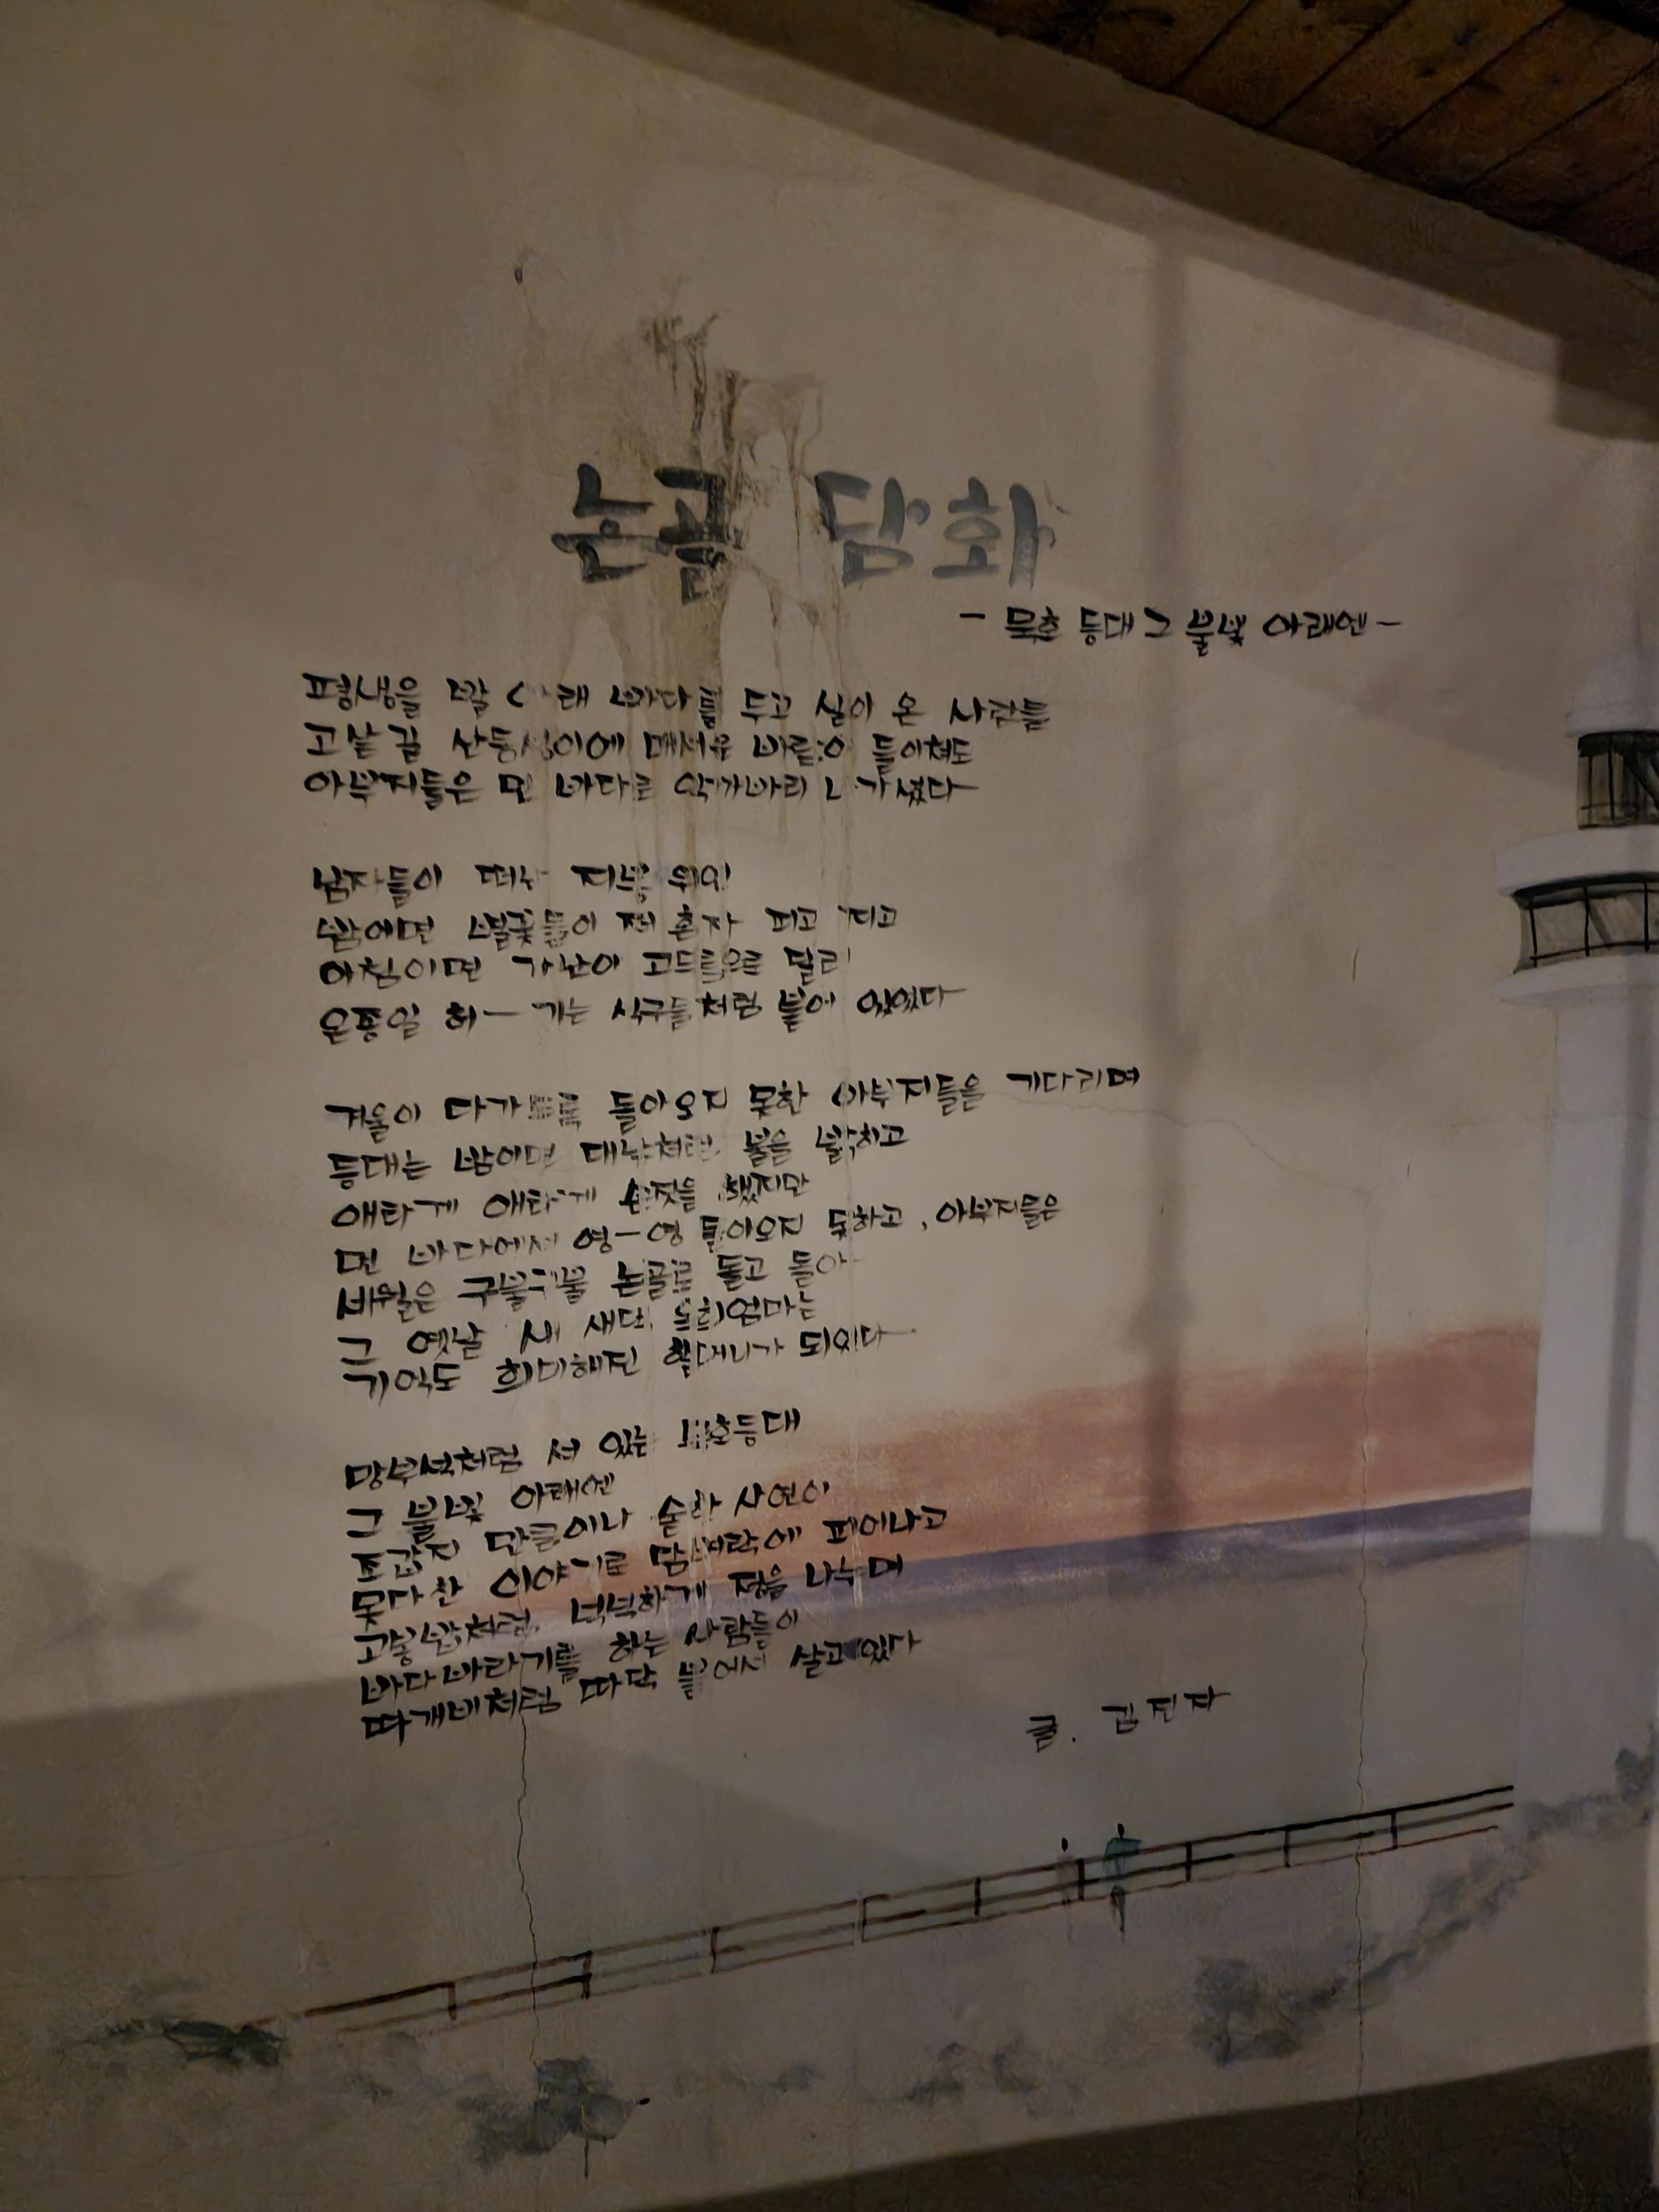 논골 담화
- 묵호 등대 그 불빛 아래엔 -
평생을 발 아래 바다를 두고 살아 온 사람들
고샅길 산등성이에 매서운 바람이 들이쳐도
아부지들은 먼 바다로 악가바리 나가셨다
남자들이 떠난 지붕 위엔
밤이면 별꽃들이 제 혼자 피고 지고
아침이면 가난이 고드름으로 달려
온종일 허ㅡ기는 식구들처럼 붙어 있었다
겨울이 다가도록 돌아오지 못한 아부지들을 기다리며
등대는 밤이면 대낮처럼 불을 밝히고
애타게 애타게 손짓을 했지만
먼 바다에서 영ㅡ영 돌아오지 못하고, 아부지들은
세월은 구불구불 논골로 돌고 돌아
그 옛날 새 새댁 엄마는
기억도 희미해진 할머니가 되었다
망부석처럼 서 있는 묵호등대
그 불빛 아래엔
조갑지 만큼이나 숱한 사연이
못다한 이야기로 담벼락에 피어나고
고봉밥처럼 넉넉하게 정을 나누며
바다바라기를 하는 사람들이
따개비처럼 따닥 붙어서 살고 있다
글. 김진자